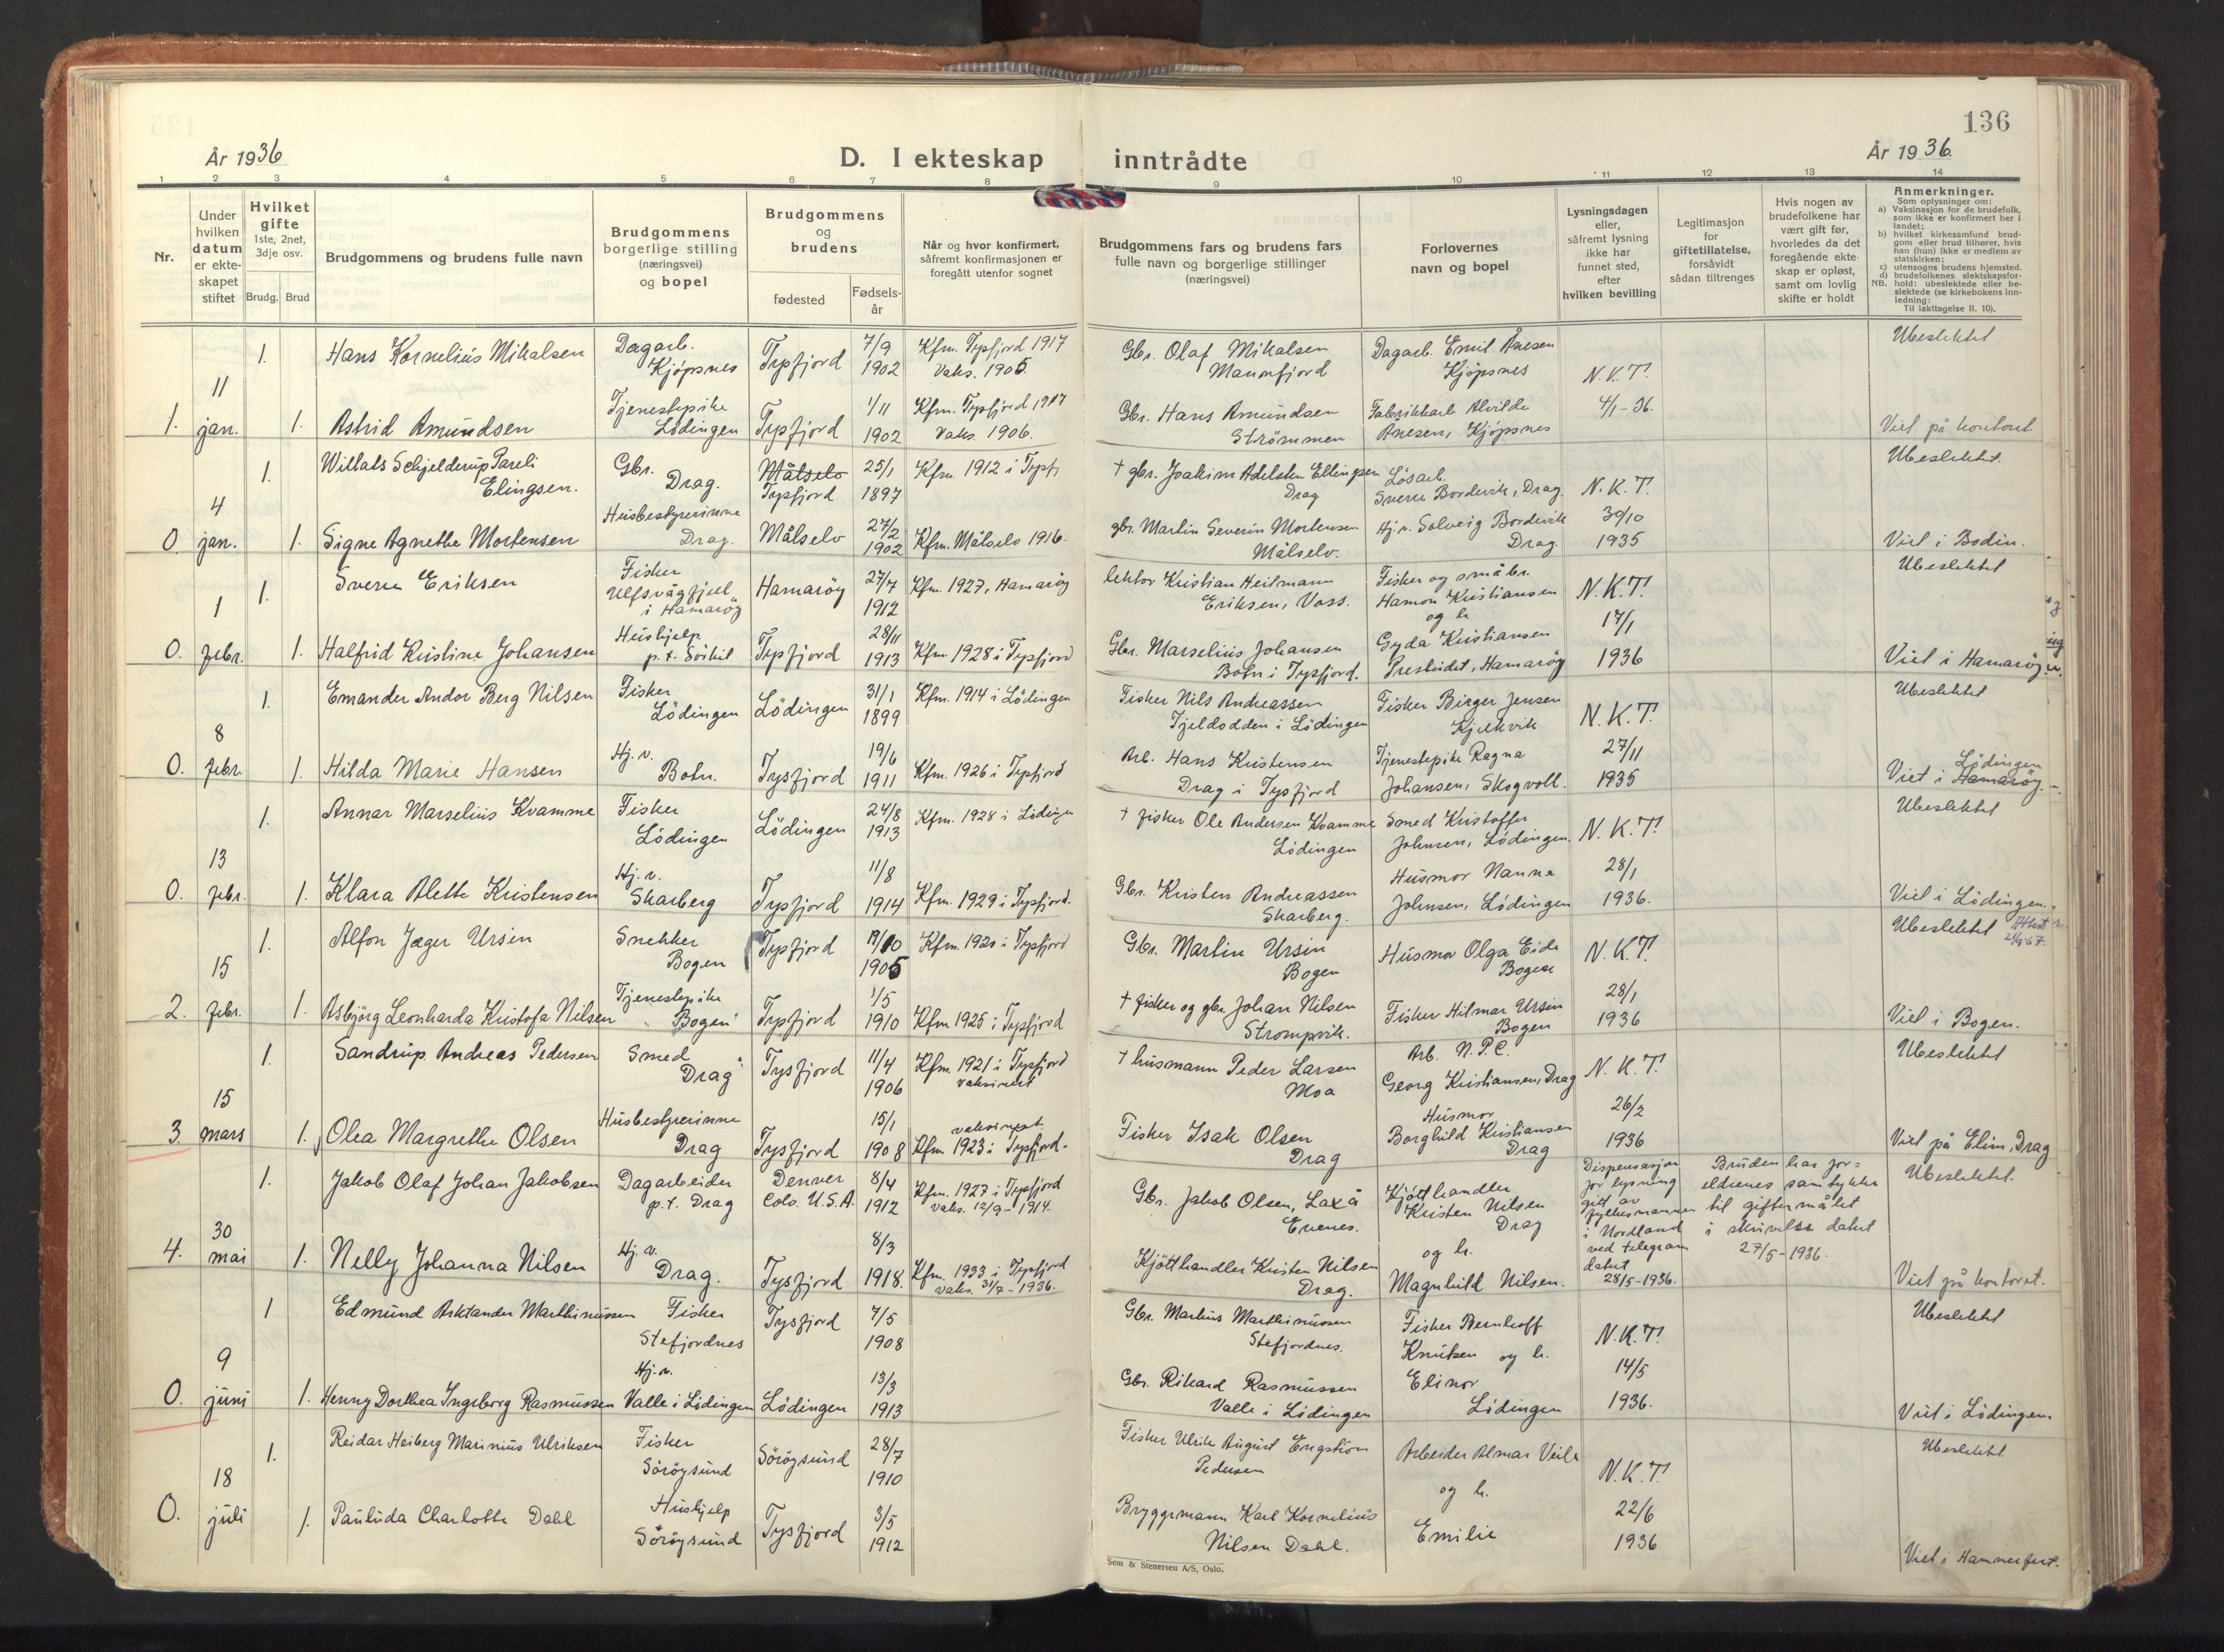 136
År 1936
D. I ekteskap inntrådte
År 1936
1 2 3 4 5 6 7 8 9 10 11 12 13 14
Nr.
Under hvilken datum er ekteskapet stiftet
Hvilket gifte
1ste, 2net, 3dje osv.
Brudg. Brud
Brudgommens og brudens fulle navn
Brudgommens borgerlige stilling (næringsvei) og bopel
Brudgommens og brudens
fødested
Fødsels-år
Når og hvor konfirmert, såfremt konfirmasjonen er foregått utenfor sognet
Brudgommens fars og brudens fars fulle navn og borgerlige stillinger (næringsvei)
Forlovernes navn og bopel
Lysningsdagen eller, såfremt lysning ikke har funnet sted, efter hvilken bevilling
Legitimasjon for giftetillatelse, forsåvidt sådan tiltrenges
Hvis nogen av brudefolkene har vært gift før, hvorledes da det foregående ekteskap er opløst, samt om lovlig skifte er holdt
Anmerkninger.
Som oplysninger om:
a) Vaksinasjon for de brudefolk, som ikke er konfirmert her i landet;
b) hvilket kirkesamfund brudgom eller brud tilhører, hvis han (hun) ikke er medlem av statskirken;
c) utensogns brudens hjemsted.
d) brudefolkenes slektskapsforhold: ubeslektede eller beslektede (se kirkebokens innledning:
NB.
Til iakttagelse II. 10).
1. 11 jan.
1. Hans Kornelius Mikalsen Dagarb. Kjöpsnes Tysfjord 7/9 1902 Kfm. Tysfjord 1917 Vaks. 1905. Gbr. Olaf Mikalsen Manonfjord Dagarb. Emil Ånesen Kjöpsnes N.K.T. Ubeslektet
1. Astrid Amundsen Tjenestepike Lödingen Tysfjord 1/11 1902 Kfm. Tysfjord 1917 Vaks. 1906. Gbr. Hans Amundsen Strömmen Fabrikkarb. Alvilde Anesen, Kjöpsnes 4/1-36. Viet på kontoret
0. 4 jan.
1. Willats Schjelderup Pareli Elingsen. Gbr. Drag. Målselv Tysfjord 25/1 1897 Kfm. 1912 i Tysfj. † gbr. Joakim Adelsten Ellingsen Drag Løsarb. Sverre Bordevik, Drag. N.K.T. Ubeslektet.
1. Signe Agnethe Mortensen Husbestyrerinne Drag. Målselv 27/2 1902 Kfm. Målselv 1916. gbr. Martin Severin Mortensen Målselv. Hj.v. Solveig Bordevik Drag. 30/10 1935 Viet i Bodin.
0. 1 febr.
1. Sverre Eriksen Fisker Ulfsvågfjell i Hamaröy Hamaröy 27/7 1912 Kfm. 1927, Hamaröy lektor Kristian Heitmann Eriksen, Voss. Fisker og småbr. Hamon Kristiansen og h. N.K.T. Ubeslektet
1. Halfrid Kristine Johansen Hushjelp p.t. Sörkil Tysfjord 28/11 1913 Kfm. 1928 i Tysfjord Gbr. Marselius Johansen Botn i Tysfjord. Gyda Kristiansen Presteidet, Hamaröy 17/1 1936 Viet i Hamaröy.
0. 8 febr.
1. Emander Andor Berg Nilsen Fisker Lödingen Lödingen 31/1 1899 Kfm. 1914 i Lödingen Fisker Nils Andreassen Tjeldodden i Lödingen Fisker Birger Jensen Kjekvik N.K.T. Ubeslektet
1. Hilda Marie Hansen Hj.v. Botn. Tysfjord 19/6 1911 Kfm. 1926 i Tysfjord Arb. Hans Kristensen Drag i Tysfjord Tjenestepike Ragna Johansen, Skogvoll. 27/11 1935 Viet i Hamaröy. Lödingen
0. 13 febr.
1. Annar Marselius Kvamme Fisker Lödingen Lödingen 24/8 1913 Kfm. 1928 i Lödingen † fisker Ole Andersen Kvamme Lödingen Smed Kristoffer Johnsen, Lödingen. N.K.T. Ubeslektet
1. Klara Alette Kristensen Hj.v. Skarberg Tysfjord 11/8 1914 Kfm. 1929 i Tysfjord. Gbr. Kristen Andreassen Skarberg. Husmor Nanna Johnsen, Lödingen 28/1 1936. Viet i Lödingen.
2. 15 febr.
1. Alfon Jæger Ursin Snekker Bogen Tysfjord 19/10 1905 Kfm. 1920 i Tysfjord Gbr. Martin Ursin Bogen Husmor Olga Eide Bogen N.K.T. Ubeslektet
1. Asbjörg Leonharda Kristofa Nilsen Tjenestepike Bogen Tysfjord 1/5 1910 Kfm 1925 i Tysfjord † fisker og gbr. Johan Nilsen Strompvik. Fisker Hilmar Ursin Bogen 28/1 1936 Viet i Bogen.
3. 15 mars
1. Sandrup Andreas Pedersen Smed Drag Tysfjord 11/4 1906 Kfm. 1921 i Tysfjord vaksinert † husmann Peder Larsen Moa Arb. N.P.C. Georg Kristiansen, Drag N.K.T. Ubeslektet
1. Olea Margrethe Olsen Husbestyrerinne Drag Tysfjord 15/1 1908 vaksinert. Kfm. 1923 i Tysfjord. Fisker Isak Olsen Drag Husmor Borghild Kristiansen Drag 26/2 1936 Viet på Elim, Drag
4. 30 mai
1. Jakob Olaf Johan Jakobsen Dagarbeider p.t. Drag Denver Colo. U.S.A. 8/4 1912 Kfm. 1927 i Tysfjord Vaks. 12/9-1914. Gbr. Jakob Olsen, Laxå Evenes. Kjötthandler Kristen Nilsen Drag og h. Dispensasjon for lysning gitt av fylkesmannen i Nordland ved telegram datert 28/5-1936. Bruden har foreldrenes samtykke til giftermålet i skrivelse datert 27/5-1936. Ubeslektet.
1. Nelly Johanna Nilsen Hj.v. Drag. Tysfjord 8/3 1918. Kfm. 1933 i Tysfjord vaks. 31/7-1936. Kjötthandler Kristen Nilsen Drag. Magnhild Nilsen. Viet på kontoret.
0. 9 juni
1 Edmund Arktander Marthinussen Fisker Stefjordnes Tysfjord 7/5 1908 Gbr. Markus Marthinussen Stefjordnes. Fisker Bernhoff Knutsen og h. N.K.T. Ubeslektet
1. Henny Dorthea Ingeborg Rasmussen Hj.v. Valle i Lödingen Lödingen 13/3 1913 Gbr. Rikard Rasmussen Valle i Lödingen Elinor Lödingen 14/5 1936. Viet i Lödingen.
0. 18 juli
1. Reidar Heiberg Marinius Ulriksen Fisker Söröysund Söröysund 28/7 1910 Fisker Ulrik August Engström Pedersen Arbeider Almar Veile og h. N.K.T. Ubeslektet
1. Paulida Charlotte Dahl Hushjelp Söröysund Tysfjord 3/5 1912 Bryggemann Karl Kornelius Nilsen Dahl. Emilie 22/6 1936 Viet i Hammerfest.
Sem & Stenersen A/S, Oslo.